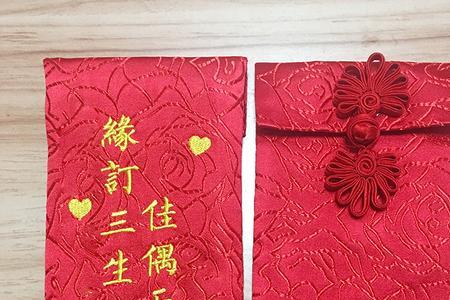 緣訂三生
佳偶